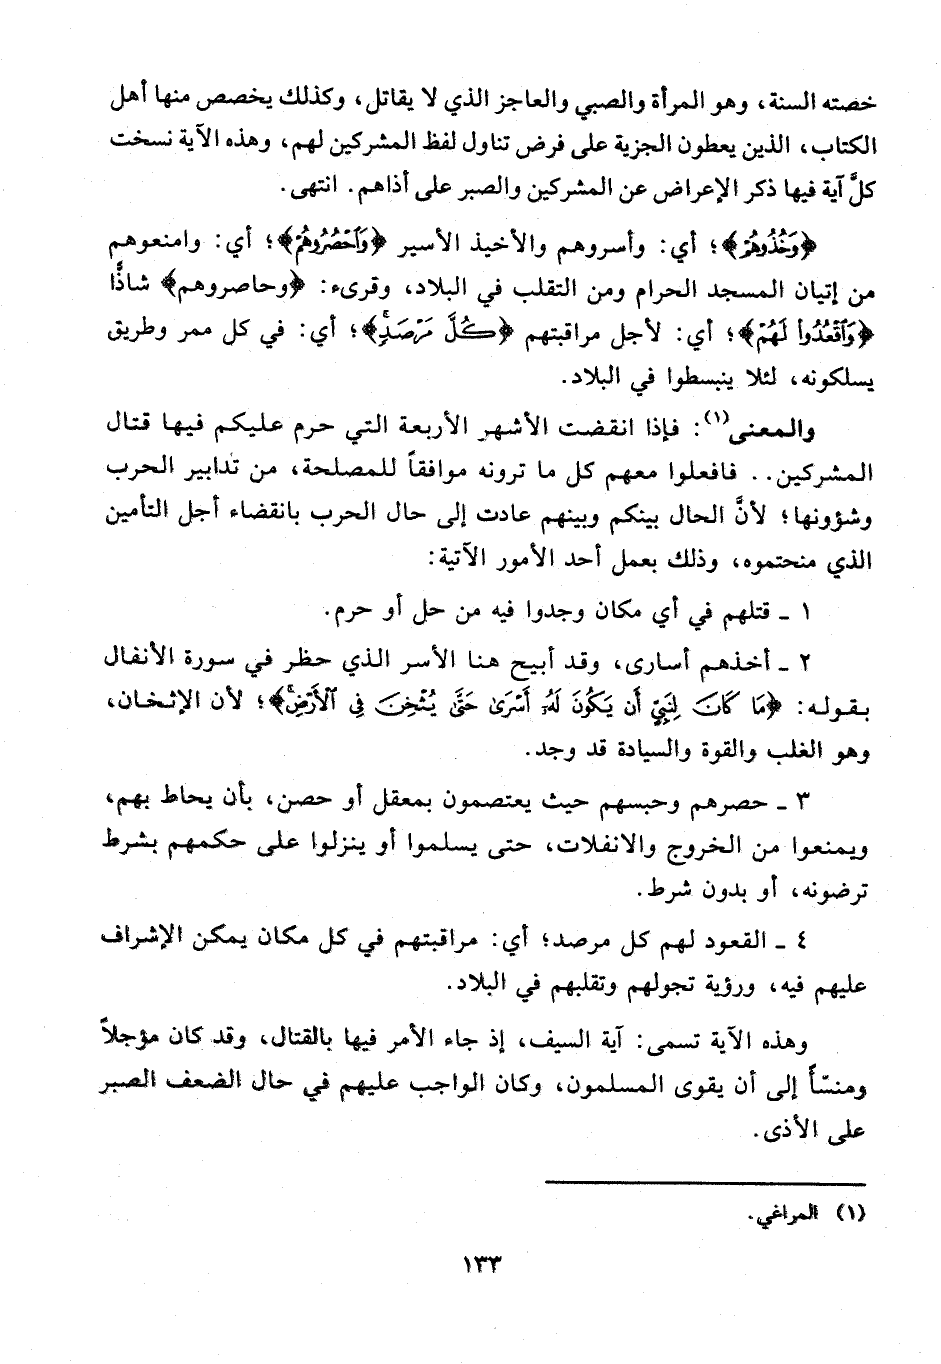 خصته السنة، وهو المرأة والصبي والعاجز الذي لا يقاتل، وكذلك يخصص منها أهل
الكتاب، الذين يعطون الجزية على فرض تناول لفظ المشركين لهم، وهذه الآية نسخت
كلَّ آية فيها ذكر الإعراض عن المشركين والصبر على أذاهم. انتهى.
﴿وَخُذُوهُمْ﴾؛ أي: وأسروهم والأخيذ الأسير ﴿وَاحْصُرُوهُمْ﴾؛ أي: وامنعوهم
من إتيان المسجد الحرام ومن التقلب في البلاد، وقرىء: ﴿وحاصروهم﴾ شاذًّا
﴿وَاقْعُدُوا لَهُمْ﴾؛ أي: لأجل مراقبتهم ﴿كُلَّ مَرْصَدٍ﴾؛ أي: في كل ممر وطريق
يسلكونه، لئلا ينبسطوا في البلاد.
والمعنى(١): فإذا انقضت الأشهر الأربعة التي حرم عليكم فيها قتال
المشركين.. فافعلوا معهم كل ما ترونه موافقاً للمصلحة، من تدابير الحرب
وشؤونها؛ لأنَّ الحال بينكم وبينهم عادت إلى حال الحرب بانقضاء أجل التأمين
الذي منحتموه، وذلك بعمل أحد الأمور الآتية:
١ ـ قتلهم في أي مكان وجدوا فيه من حل أو حرم.
٢ ـ أخذهم أسارى، وقد أبيح هنا الأسر الذي حظر في سورة الأنفال
بقوله: ﴿مَا كَانَ لِنَبِيٍّ أَن يَكُونَ لَهُ أَسْرَىٰ حَتَّىٰ يُثْخِنَ فِي الْأَرْضِ﴾؛ لأن الإثخان،
وهو الغلب والقوة والسيادة قد وجد.
٣ ـ حصرهم وحبسهم حيث يعتصمون بمعقل أو حصن، بأن يحاط بهم،
ويمنعوا من الخروج والانفلات، حتى يسلموا أو ينزلوا على حكمهم بشرط
ترضونه، أو بدون شرط.
٤ ـ القعود لهم كل مرصد؛ أي: مراقبتهم في كل مكان يمكن الإشراف
عليهم فيه، ورؤية تجولهم وتقلبهم في البلاد.
وهذه الآية تسمى: آية السيف، إذ جاء الأمر فيها بالقتال، وقد كان مؤجلاً
ومنسّأً إلى أن يقوى المسلمون، وكان الواجب عليهم في حال الضعف الصبر
على الأذى.
(١) المراغي.
١٣٣